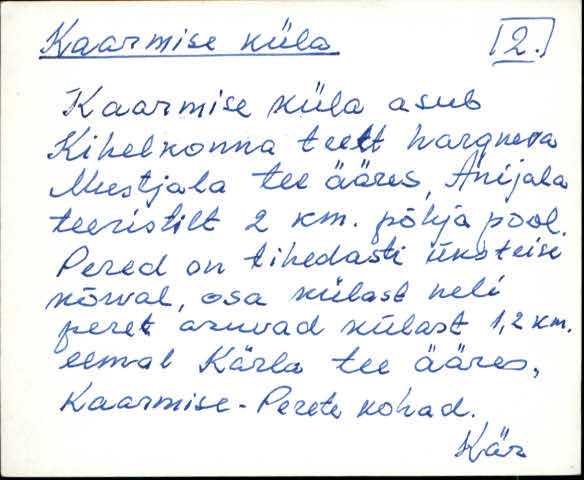 Kaarmise küla 2.
Kaarmise küla asub
Kihelkonna teelt hargneva
Mustjala tee ääres, Anijala
teeristilt 2 km. põhja pool.
Pered on tihedasti üksteise
kõrval, osa külast neli
peret asuvad külast 1,2 km.
eemal Kärla tee ääres,
Kaarmise-Perete kohad.
Kär